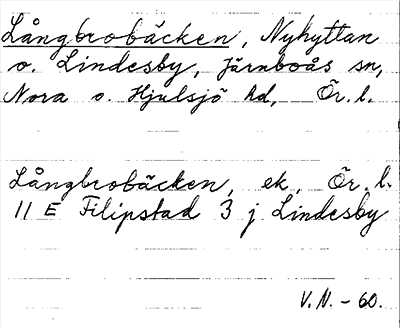 Långbrobäcken, Nyhyttan
o. Lindesby, Järnboås sn,
Nora o. Hjulsjö hd, Ör. l.
Långbrobäcken, ek, Ör. l.
11 E Filipstad 3 j Lindesby
V.N. - 60.